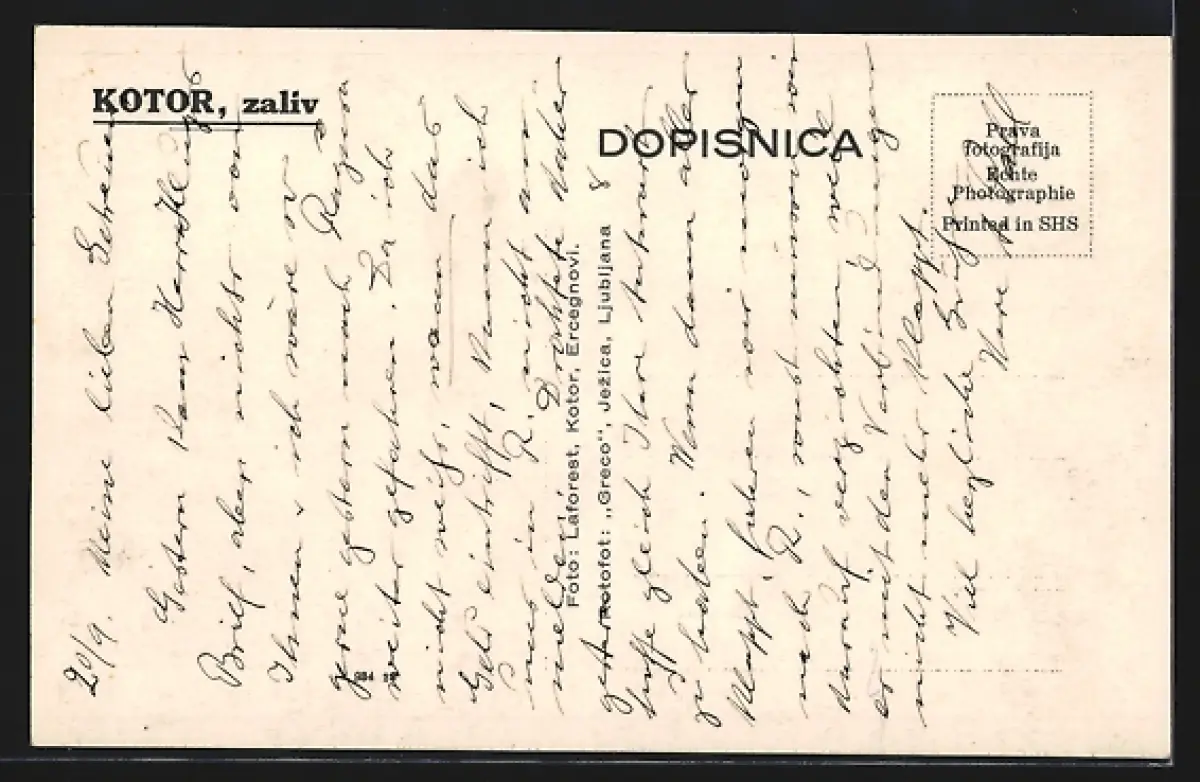 KOTOR, zaliv
DOPISNICA
Prava
fotografija
Echte
Photographie
Printed in SHS
Foto: Laforest, Kotor, Ercegnovi.
Rotofot: „Greco“, Ježica, Ljubljana
20/9. Meine lieben
Gestern kam
Brief, aber nichts von
Ihnen, ich wäre so
gerne gestern nach Ragusa
weiter gefahren. Da ich
nicht weiß, wann das
Geld eintrifft, kann ich
uns in R. nicht an-
melden. Drahtete daher
gestern
hoffe gleich Ihre Antwort
zu haben. Wenn dann alles
klappt, fahren wir morgen
nach R., sonst müssen wir
darauf verzichten, weil
es mit den Verbindungen
nicht mehr klappt.
Viel herzliche Grüße
Ihre